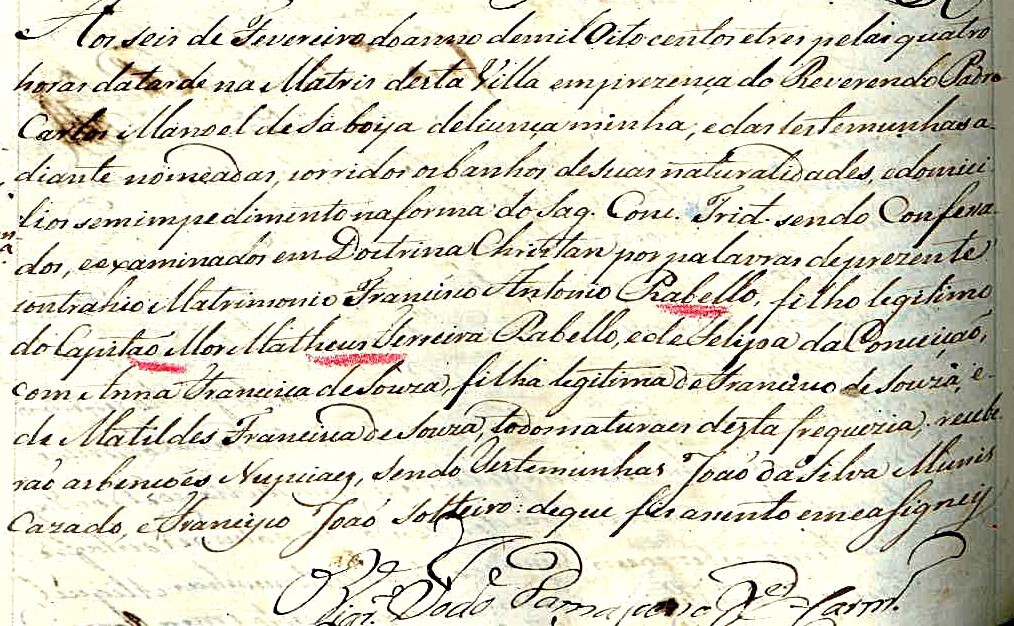 Aos seis de Fevereiro do anno de mil Oito centos e tres pelas quatro
horas da tarde na Matris desta Villa em prezença do Reverendo Padre
Carlos Manoel de Saboya de licença minha, e das testemunhas a-
diante nomeadas, corridos os banhos de suas naturalidades, e domici-
lios sem impedimento na forma do Sag. Conc. Trid. sendo Confessa-
dos, e examinados em Doctrina Christan por palavras de prezente
contrahio Matrimonio Francisco Antonio Rabello, filho legitimo
do Capitão Mor Matheus Ferreira Rabello, e de Felipa da Conceição,
com Anna Francisca de Souza, filha legitima de Francisco de Souza, e
de Matildes Francisca de Souza, todos naturaes desta freguezia, recebe-
rão as bençoes Nupciaes, sendo testemunhas João da Silva Munis
Cazado, e Francisco João Solteiro: de que fis asento em que asigney
Vigr.º João